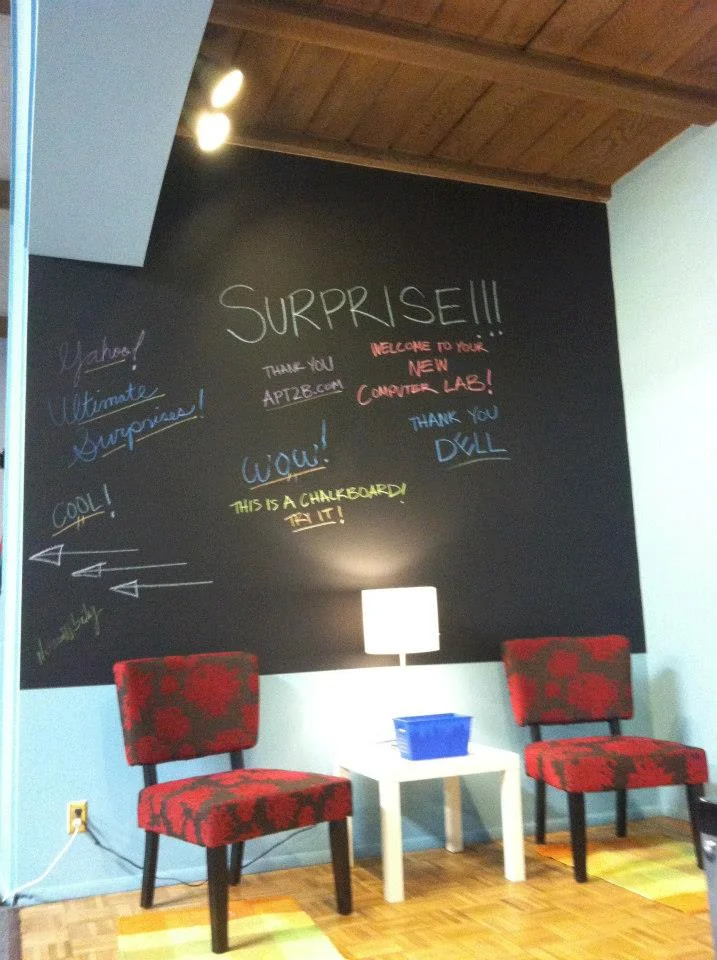 SURPRISE!!!
Yahoo!
Ultimate
Surprises!
COOL!
THANK YOU
APT2B.COM
WOW!
THIS IS A CHALKBOARD!
TRY IT!
WELCOME TO YOUR
NEW
COMPUTER LAB!
THANK YOU
DELL